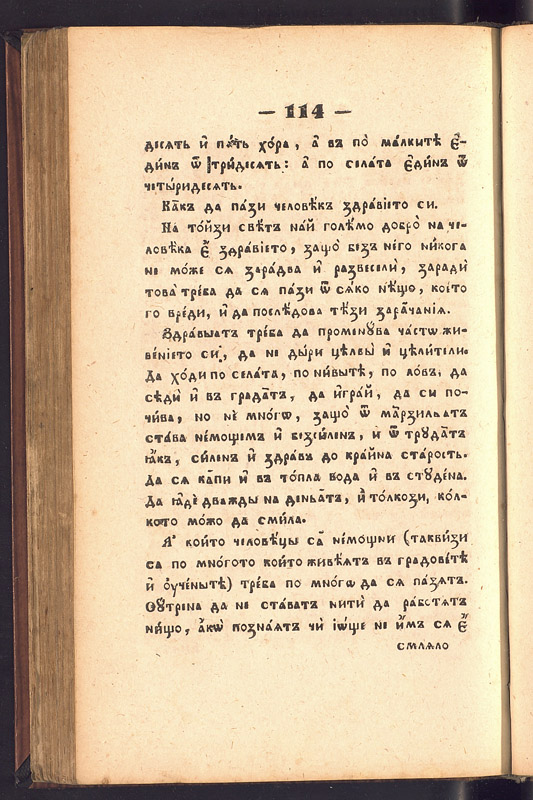 — 114 —
десѧть и҆ пѧ́ть хо́ра, а҆ въ по̀ ма́лкитѣ є҆-
ди́нъ ѿ три́десѧть: а҆ по села́та є҆ди́нъ ѿ
четы́ридесѧть.
Ка́къ да па́зи человѣ́къ здра́вїето си.
На то́йзи свѣ́тъ на́й голѣ́мо добро̀ на че-
ловѣ́ка є҆̀ здра́вїето, защо̀ безъ не́го ни́кога
не мо́же сѧ зара́два и҆ развеселѝ, зарадѝ
това̀ трѣ́ба да сѧ па́зи ѿ сѧ́ко нѣ́що, кое́то
го вре́ди, и҆ да послѣ́дова тѣ́зи зара́чанїѧ.
Здра́выатъ трѣ́ба да промену́ва ча́стѡ жи-
ве́нїето си, да не ды́ри цѣлвы̀ и҆ цѣли́тели.
Да хо́ди по села́та, по ни́вытѣ, по ло́въ, да
сѣдѝ и҆ въ гра́датъ, да и҆гра́й, да си по-
чи́ва, но нѐ мно́гѡ, защо̀ ѿ ма́рзильатъ
ста́ва не́мощемъ и҆ безси́ленъ, и҆ ѿ тру́датъ
ꙗ҆́къ, си́ленъ и҆ здра́въ до кра́йна ста́рость.
Да сѧ ка́пи и҆ въ то́пла вода̀ и҆ въ студе́на.
Да ꙗ҆дѐ два́жды на де́ньатъ, и҆ то́лкози, ко́л-
кото мо́жо да сми́ла.
А҆ кои́то человѣ́цы са̀ не́мощни (такви́зи
са по мно́гото кои́то живѣ́ѧтъ въ градове́тѣ
и҆ оу҆че́нытѣ) трѣ́ба по мно́гѡ да сѧ па́зѧтъ.
Ѹ҆́трина да не ста́ватъ нитѝ да ра́ботѧтъ
ни́що, а҆́кѡ позна́ѧтъ чѝ і҆ѡ́ще не и҆̀мъ сѧ є҆̀
смлѧло